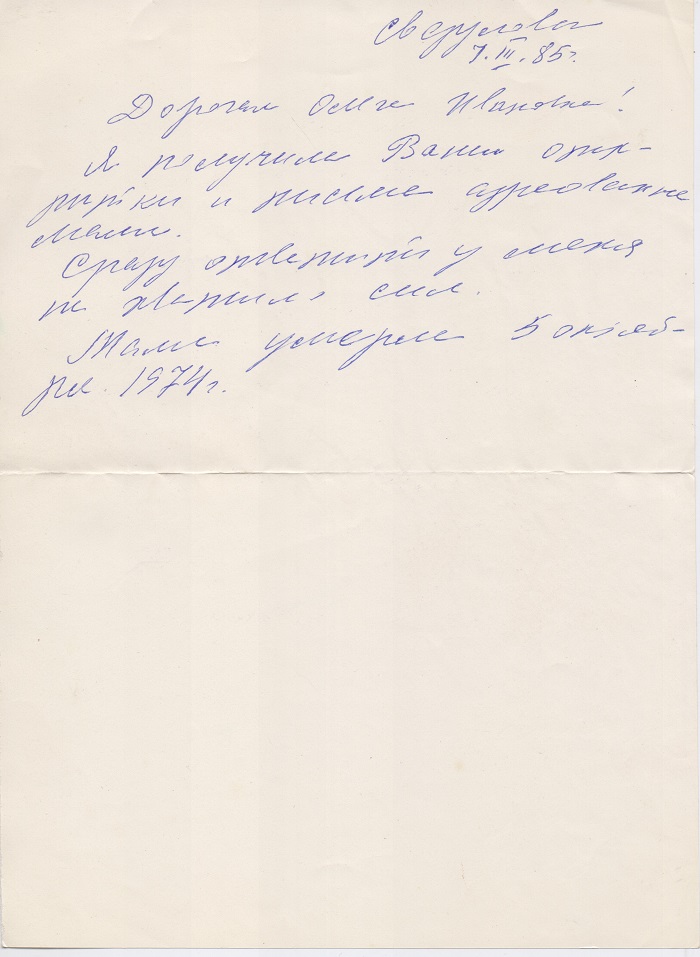 Свердловск
7.III.85г.
Дорогая Ольга Ивановна!
Я получила Ваши отк-
рытки и письма адресованные
маме.
Сразу ответить у меня
не хватило сил.
Мама умерла 5 октяб-
ря 1974г.